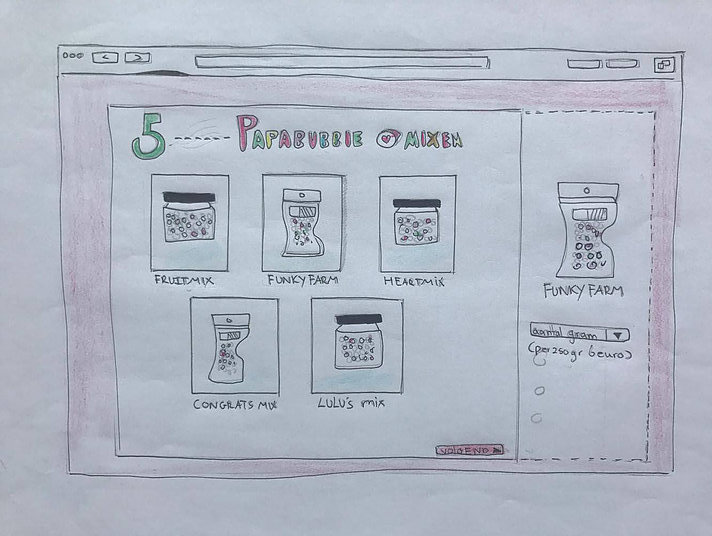 5 ----- PAPABUBBLE MIXEN
FRUITMIX
FUNKY FARM
HEARTMIX
CONGRATS MIX
LULU's mix
VOLGEND
FUNKY FARM
aantal gram
(per 250 gr 6 euro)